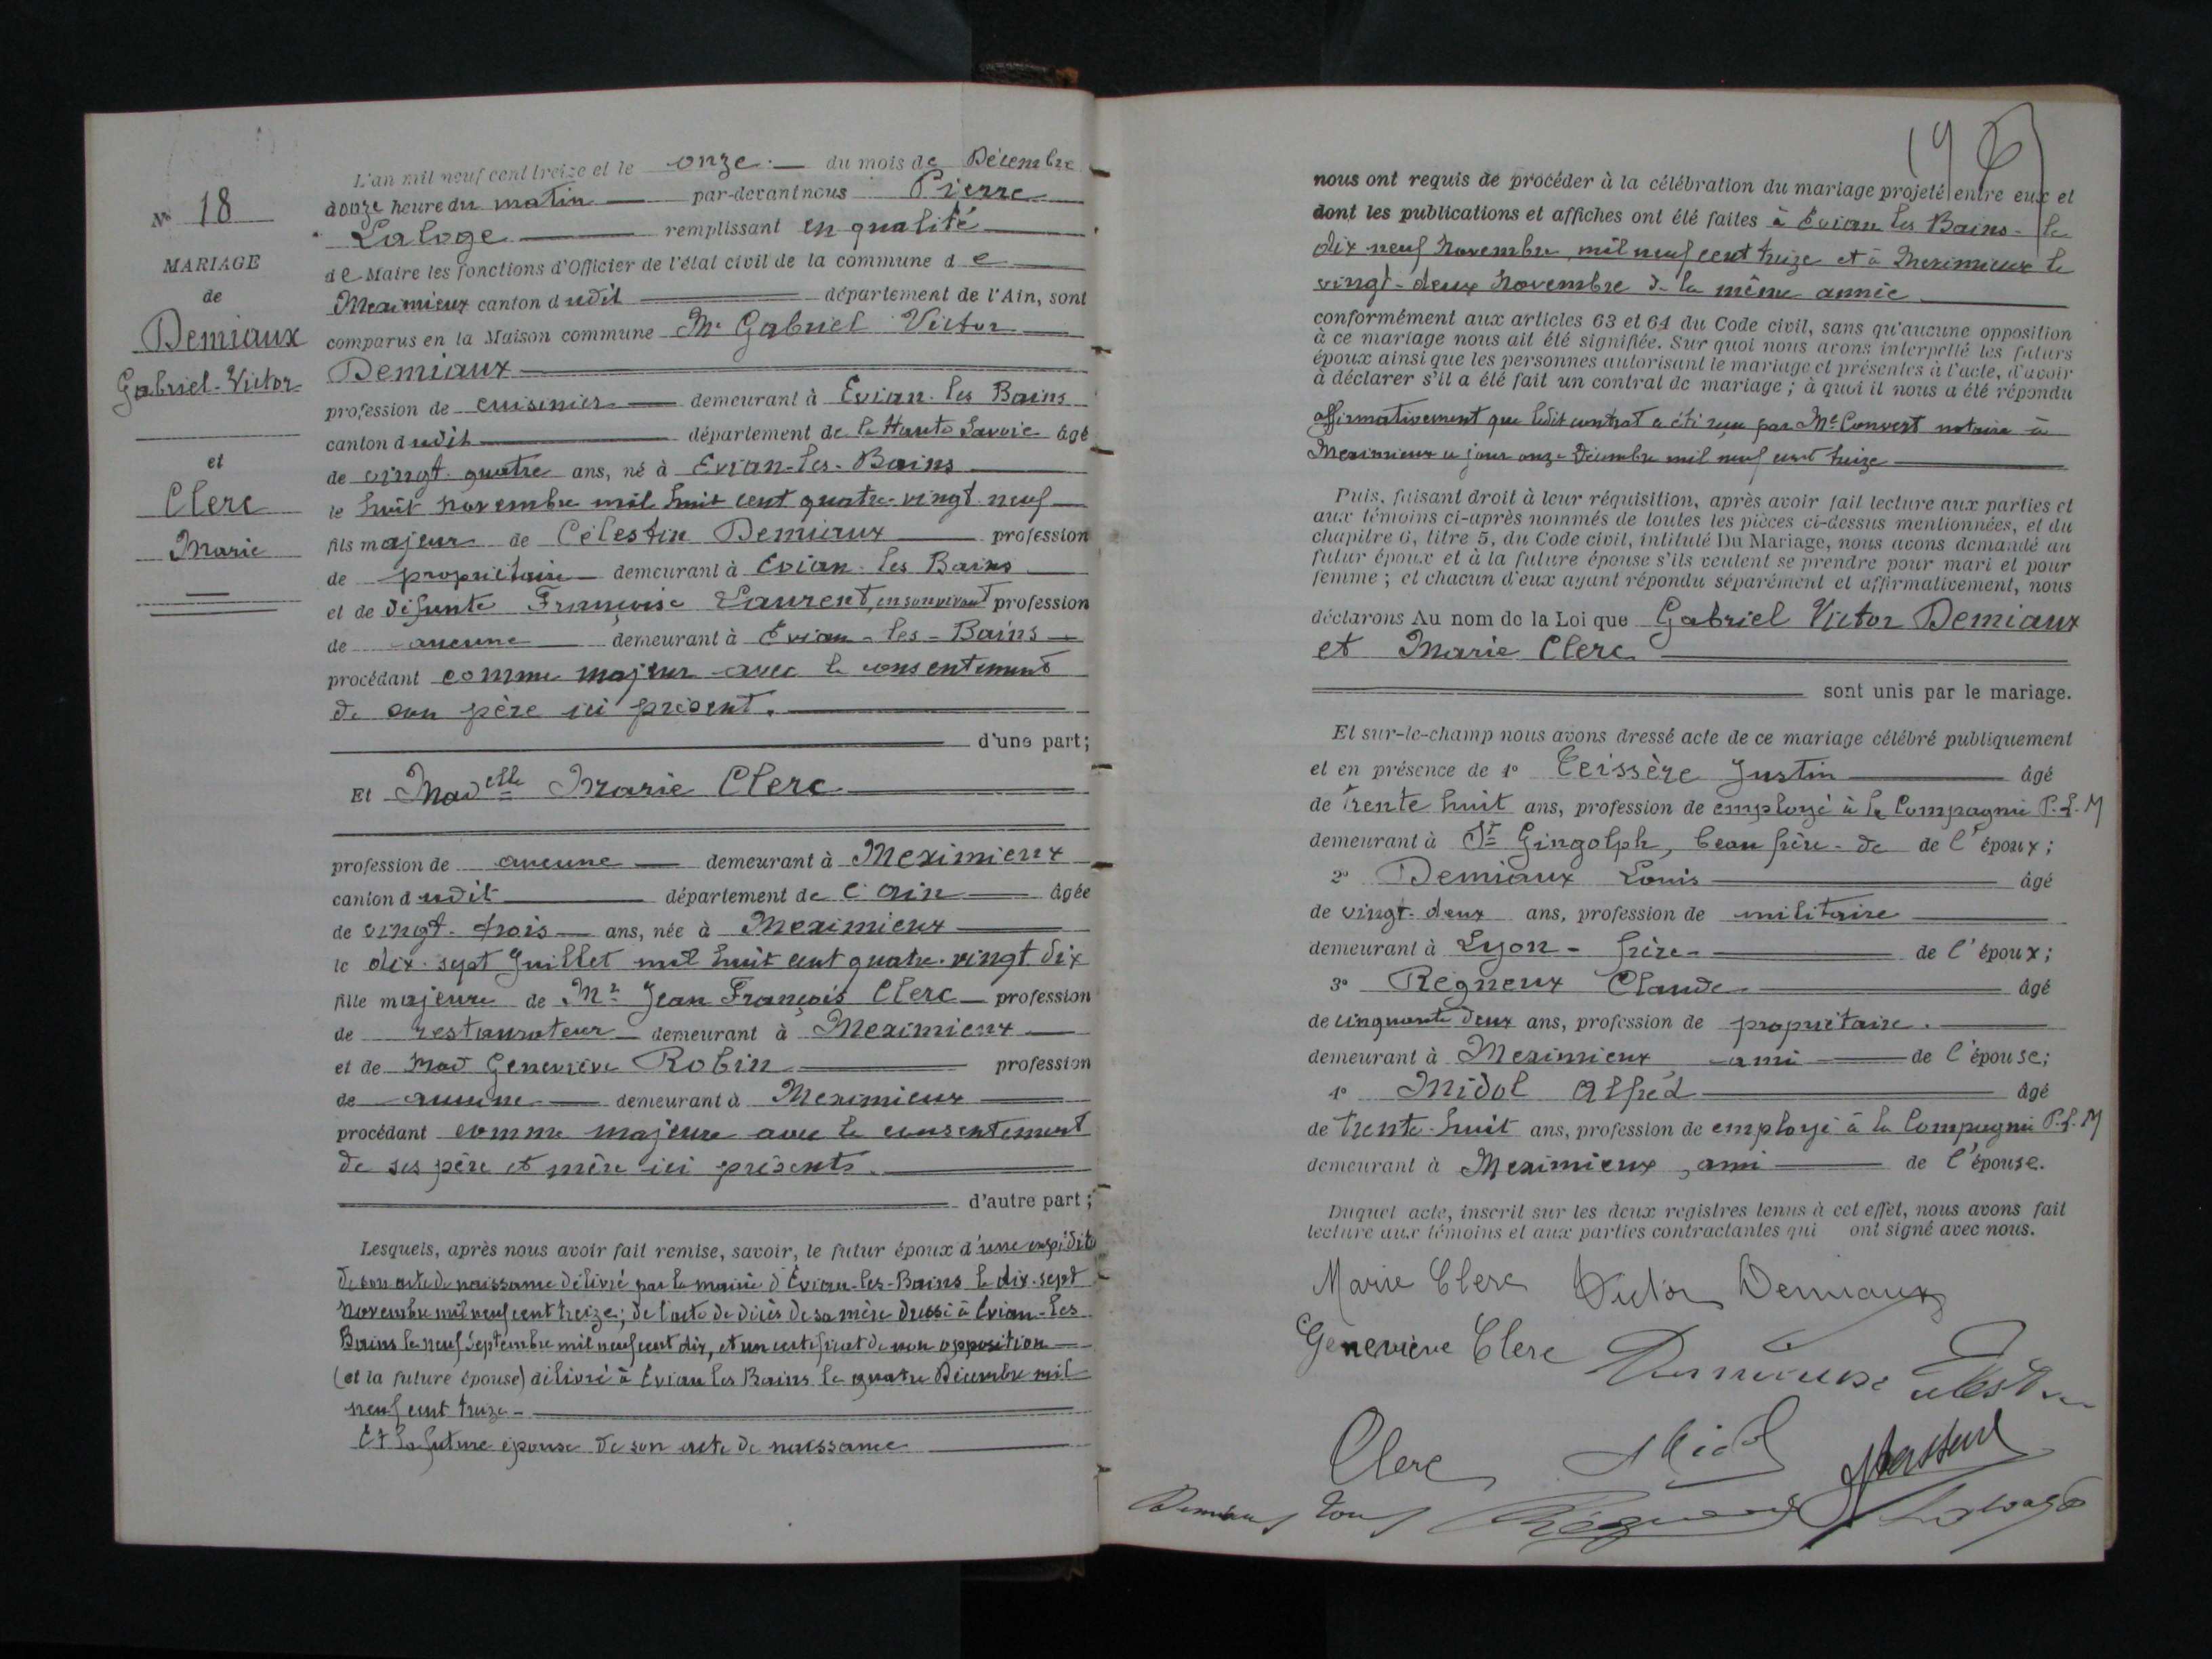 N° 18
MARIAGE
de
Demiaux
Gabriel-Victor
et
Clerc
Marie
L'an mil neuf cent treize et le onze du mois de Décembre
douze heure du matin par-devant nous Pierre
Laloge remplissant en qualité
de Maire les fonctions d'Officier de l'état civil de la commune de
Meximieux canton dudit département de l'Ain, sont
comparus en la Maison commune Mr Gabriel Victor
Demiaux
profession de cuisinier demeurant à Evian-les Bains
canton dudit département de la Haute Savoie âgé
de vingt-quatre ans, né à Evian-les-Bains
le huit novembre mil huit cent quatre-vingt-neuf
fils majeur de Célestin Demiaux profession
de propriétaire demeurant à Evian-les Bains
et de défunte Françoise Laurent, en son vivant profession
de aucune demeurant à Evian-les-Bains
procédant comme majeur avec le consentement
de son père ici présent.
d'une part;
Et Madelle Marie Clerc
profession de aucune demeurant à Meximieux
canton dudit département de l'Ain âgée
de vingt-trois ans, née à Meximieux
le dix-sept Juillet mil huit cent quatre-vingt dix
fille majeure de Mr Jean François Clerc profession
de restaurateur demeurant à Meximieux
et de Mad Geneviève Robin profession
de aucune demeurant à Meximieux
procédant comme majeure avec le consentement
de ses père et mère ici présents.
d'autre part;
Lesquels, après nous avoir fait remise, savoir, le futur époux d'une expédit
de son acte de naissance délivré par la mairie d'Évian-les-Bains le dix-sept
Novembre mil neuf cent treize; de l'acte de décès de sa mère dressé à Evian-les
Bains le neuf Septembre mil neuf cent dix, et un certificat de non opposition
(et la future épouse) délivré à Evian les Bains le quatre Décembre mil
neuf cent treize
Et la future épouse de son acte de naissance
nous ont requis de procéder à la célébration du mariage projeté entre eux et
dont les publications et affiches ont été faites à Evian les Bains - le
dix neuf Novembre mil neuf cent treize et à Meximieux le
vingt-deux Novembre de la même année
conformément aux articles 63 et 64 du Code civil, sans qu'aucune opposition
à ce mariage nous ait été signifiée. Sur quoi nous avons interpellé les futurs
époux ainsi que les personnes autorisant le mariage et présentes à l'acte, d'avoir
à déclarer s'il a été fait un contrat de mariage; à quoi il nous a été répondu
affirmativement que ledit contrat a été reçu par Me Convert notaire à
Meximieux ce jour onze Décembre mil neuf cent treize
Puis, faisant droit à leur réquisition, après avoir fait lecture aux parties et
aux témoins ci-après nommés de toutes les pièces ci-dessus mentionnées, et du
chapitre 6, titre 5, du Code civil, intitulé Du Mariage, nous avons demandé au
futur époux et à la future épouse s'ils veulent se prendre pour mari et pour
femme; et chacun d'eux ayant répondu séparément et affirmativement, nous
déclarons Au nom de la Loi que Gabriel Victor Demiaux
et Marie Clerc
sont unis par le mariage.
Et sur-le-champ nous avons dressé acte de ce mariage célébré publiquement
et en présence de 1° Teissère Justin âgé
de trente huit ans, profession de employé à la Compagnie P.L.M
demeurant à St Gingolph, beau frère-de de l'époux;
2° Demiaux Louis âgé
de vingt-deux ans, profession de militaire
demeurant à Lyon - frère de l'époux;
3° Régneux Claude âgé
de cinquante deux ans, profession de propriétaire
demeurant à Meximieux ami de l'épouse;
4° Midol Alfred âgé
de trente-huit ans, profession de employé à la Compagnie P.L.M
demeurant à Meximieux, ami de l'épouse.
Duquel acte, inscrit sur les deux registres tenus à cet effet, nous avons fait
lecture aux témoins et aux parties contractantes qui ont signé avec nous.
Marie Clerc Victor Demiaux
Geneviève Clerc
Clerc Midol
Demiaux